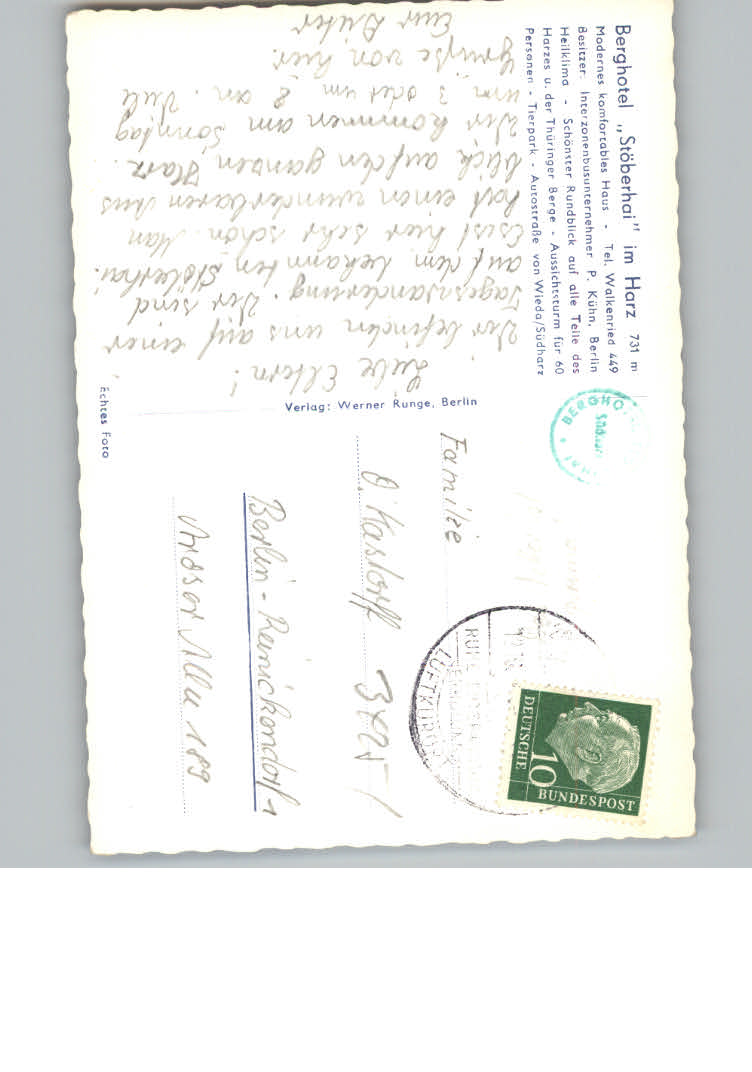 Berghotel „Stöberhai" im Harz 731 m
Modernes komfortables Haus - Tel. Walkenried 449
Besitzer: Interzonenbusunternehmer P. Kühn, Berlin
Heilklima - Schönster Rundblick auf alle Teile des
Harzes u. der Thüringer Berge - Aussichtsturm für 60
Personen - Tierpark - Autostraße von Wieda/Südharz
Liebe Eltern!
Wir befinden uns auf einer
Tageswanderung. Wir sind
auf dem bekannten Stöberhai.
Es ist hier sehr schön. Man
hat einen wunderbaren Aus
blick auf den ganzen Harz.
Wir kommen am Sonntag
um 3 oder um 8 an. Viele
Grüße von hier.
Euer Dieter
Verlag: Werner Runge, Berlin
Echtes Foto
BERGHO
LUFTKURORT
DEUTSCHE
BUNDESPOST
10
Familie
O. Kastorff
Berlin-Reinickendorf 1
Aroser Allee 189